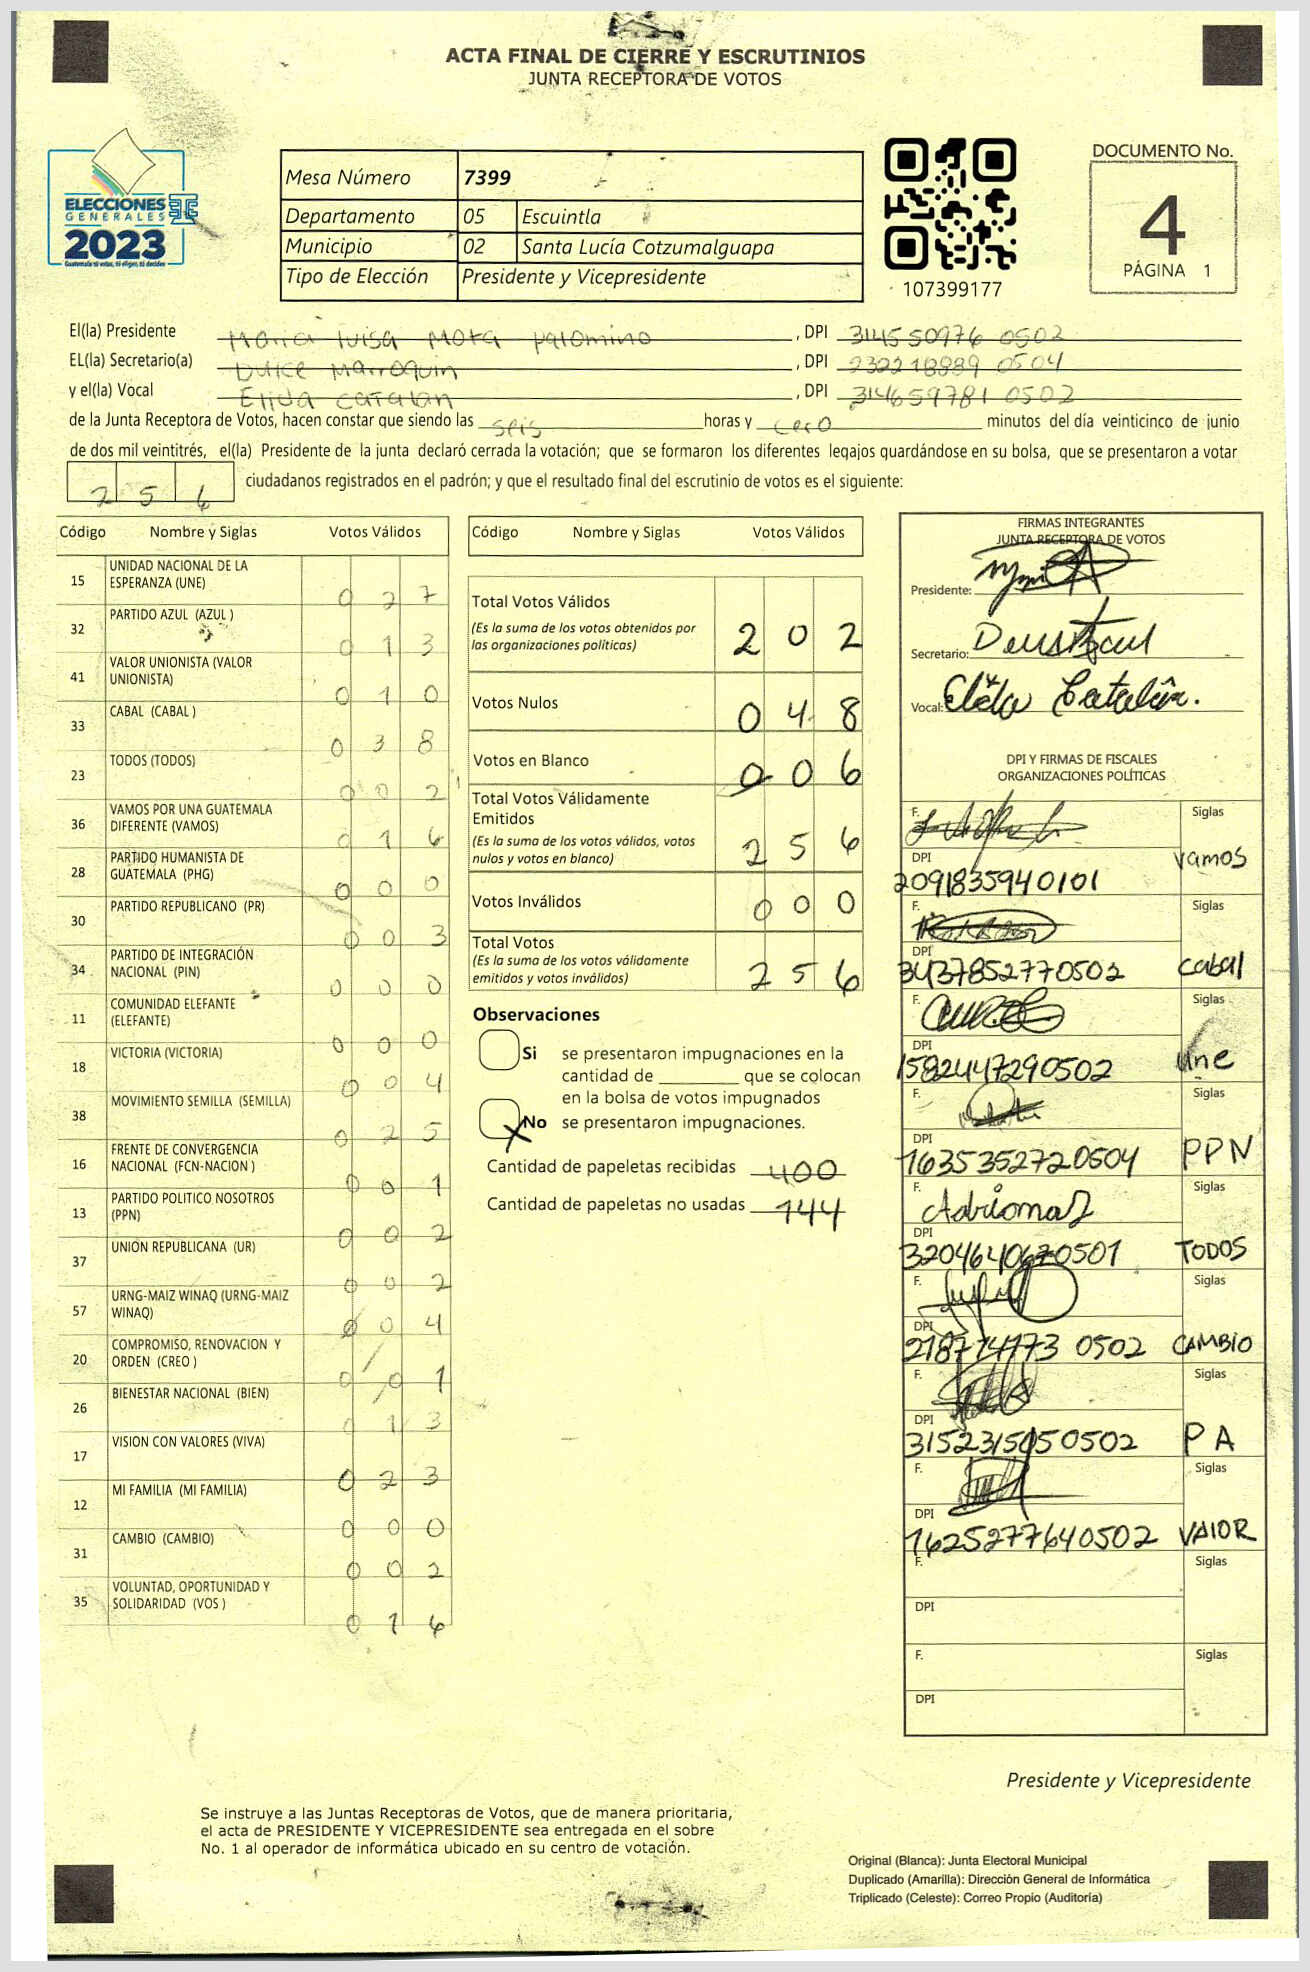 ACTA FINAL DE CIERRE Y ESCRUTINIOS
JUNTA RECEPTORA DE VOTOS
ELECCIONES
GENERALES
2023
Guatemala tú votas, tú eliges, tú decides
Mesa Número 7399
Departamento 05 Escuintla
Municipio 02 Santa Lucía Cotzumalguapa
Tipo de Elección Presidente y Vicepresidente
107399177
DOCUMENTO No.
4
PÁGINA 1
El(la) Presidente Maria luisa Mota palomino , DPI 314550976 0502
EL(la) Secretario(a) Dulce Marroquin , DPI 232218889 0504
y el(la) Vocal Elida catalan , DPI 314659781 0502
de la Junta Receptora de Votos, hacen constar que siendo las seis horas y cero minutos del día veinticinco de junio
de dos mil veintitrés, el(la) Presidente de la junta declaró cerrada la votación; que se formaron los diferentes legajos guardándose en su bolsa, que se presentaron a votar
2 5 6 ciudadanos registrados en el padrón; y que el resultado final del escrutinio de votos es el siguiente:
Código Nombre y Siglas Votos Válidos
15 UNIDAD NACIONAL DE LA
ESPERANZA (UNE) 0 2 7
32 PARTIDO AZUL (AZUL ) 0 1 3
41 VALOR UNIONISTA (VALOR
UNIONISTA) 0 1 0
33 CABAL (CABAL ) 0 3 8
23 TODOS (TODOS) 0 0 2
36 VAMOS POR UNA GUATEMALA
DIFERENTE (VAMOS) 0 1 6
28 PARTIDO HUMANISTA DE
GUATEMALA (PHG) 0 0 0
30 PARTIDO REPUBLICANO (PR) 0 0 3
34 PARTIDO DE INTEGRACIÓN
NACIONAL (PIN) 0 0 0
11 COMUNIDAD ELEFANTE
(ELEFANTE) 0 0 0
18 VICTORIA (VICTORIA) 0 0 4
38 MOVIMIENTO SEMILLA (SEMILLA) 0 2 5
16 FRENTE DE CONVERGENCIA
NACIONAL (FCN-NACION ) 0 0 1
13 PARTIDO POLITICO NOSOTROS
(PPN) 0 0 2
37 UNION REPUBLICANA (UR) 0 0 2
57 URNG-MAIZ WINAQ (URNG-MAIZ
WINAQ) 0 0 4
20 COMPROMISO, RENOVACION Y
ORDEN (CREO ) 0 0 1
26 BIENESTAR NACIONAL (BIEN) 0 1 3
17 VISION CON VALORES (VIVA) 0 2 3
12 MI FAMILIA (MI FAMILIA) 0 0 0
31 CAMBIO (CAMBIO) 0 0 2
35 VOLUNTAD, OPORTUNIDAD Y
SOLIDARIDAD (VOS ) 0 1 6
Código Nombre y Siglas Votos Válidos
Total Votos Válidos
(Es la suma de los votos obtenidos por
las organizaciones políticas) 2 0 2
Votos Nulos 0 4 8
Votos en Blanco 0 0 6
Total Votos Válidamente
Emitidos
(Es la suma de los votos válidos, votos
nulos y votos en blanco) 2 5 6
Votos Inválidos 0 0 0
Total Votos
(Es la suma de los votos válidamente
emitidos y votos inválidos) 2 5 6
Observaciones
Si se presentaron impugnaciones en la
cantidad de ________ que se colocan
en la bolsa de votos impugnados
X No se presentaron impugnaciones.
Cantidad de papeletas recibidas 400
Cantidad de papeletas no usadas 144
FIRMAS INTEGRANTES
JUNTA RECEPTORA DE VOTOS
Presidente:
Secretario:
Vocal: Elida Catalán.
DPI Y FIRMAS DE FISCALES
ORGANIZACIONES POLÍTICAS
F. Siglas
DPI vamos
2091835940101
F. Siglas
DPI
3437852770502 cabal
F. Siglas
DPI
1582447290502 une
F. Siglas
DPI
1635352720504 PPN
F. Siglas
DPI
3204640670501 TODOS
F. Siglas
DPI
218774173 0502 CAMBIO
F. Siglas
DPI
3152315050502 PA
F. Siglas
DPI
1625277640502 VAlOR
F. Siglas
DPI
F. Siglas
DPI
Presidente y Vicepresidente
Se instruye a las Juntas Receptoras de Votos, que de manera prioritaria,
el acta de PRESIDENTE Y VICEPRESIDENTE sea entregada en el sobre
No. 1 al operador de informática ubicado en su centro de votación.
Original (Blanca): Junta Electoral Municipal
Duplicado (Amarilla): Dirección General de Informática
Triplicado (Celeste): Correo Propio (Auditoría)